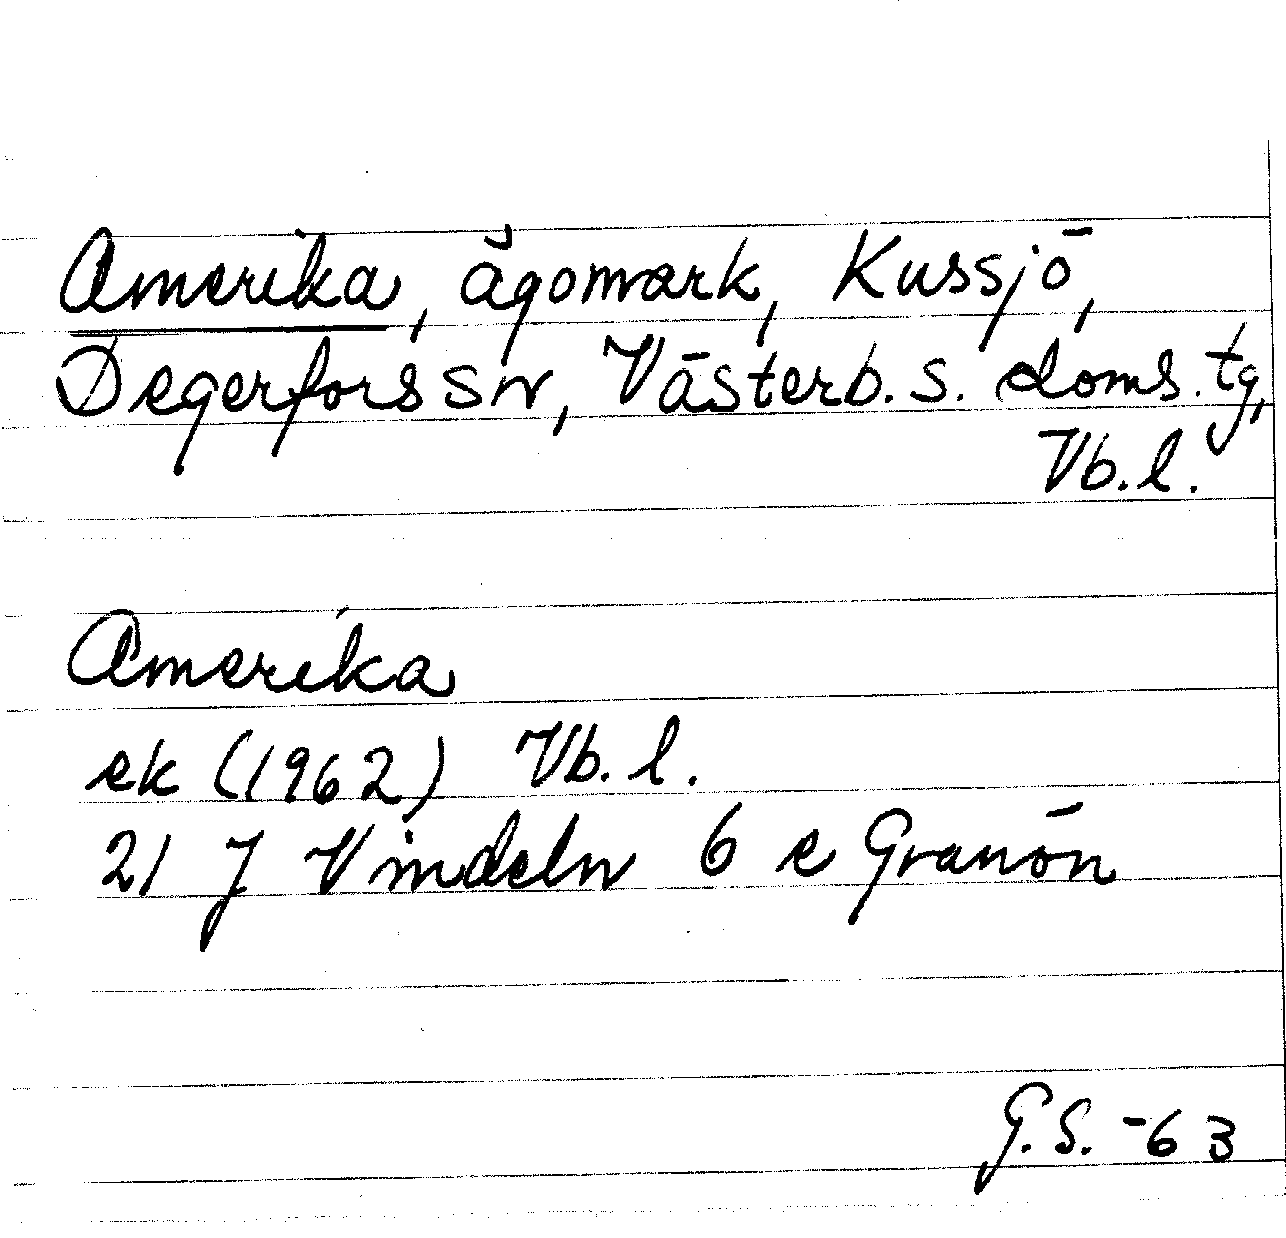 Amerika, ägomark, Kussjö,
Degerfors sn, Västerb. s. doms. tg,
Vb. l.
Amerika
ek (1962) Vb. l.
21 J Vindeln 6 e Granön
G. S. -63